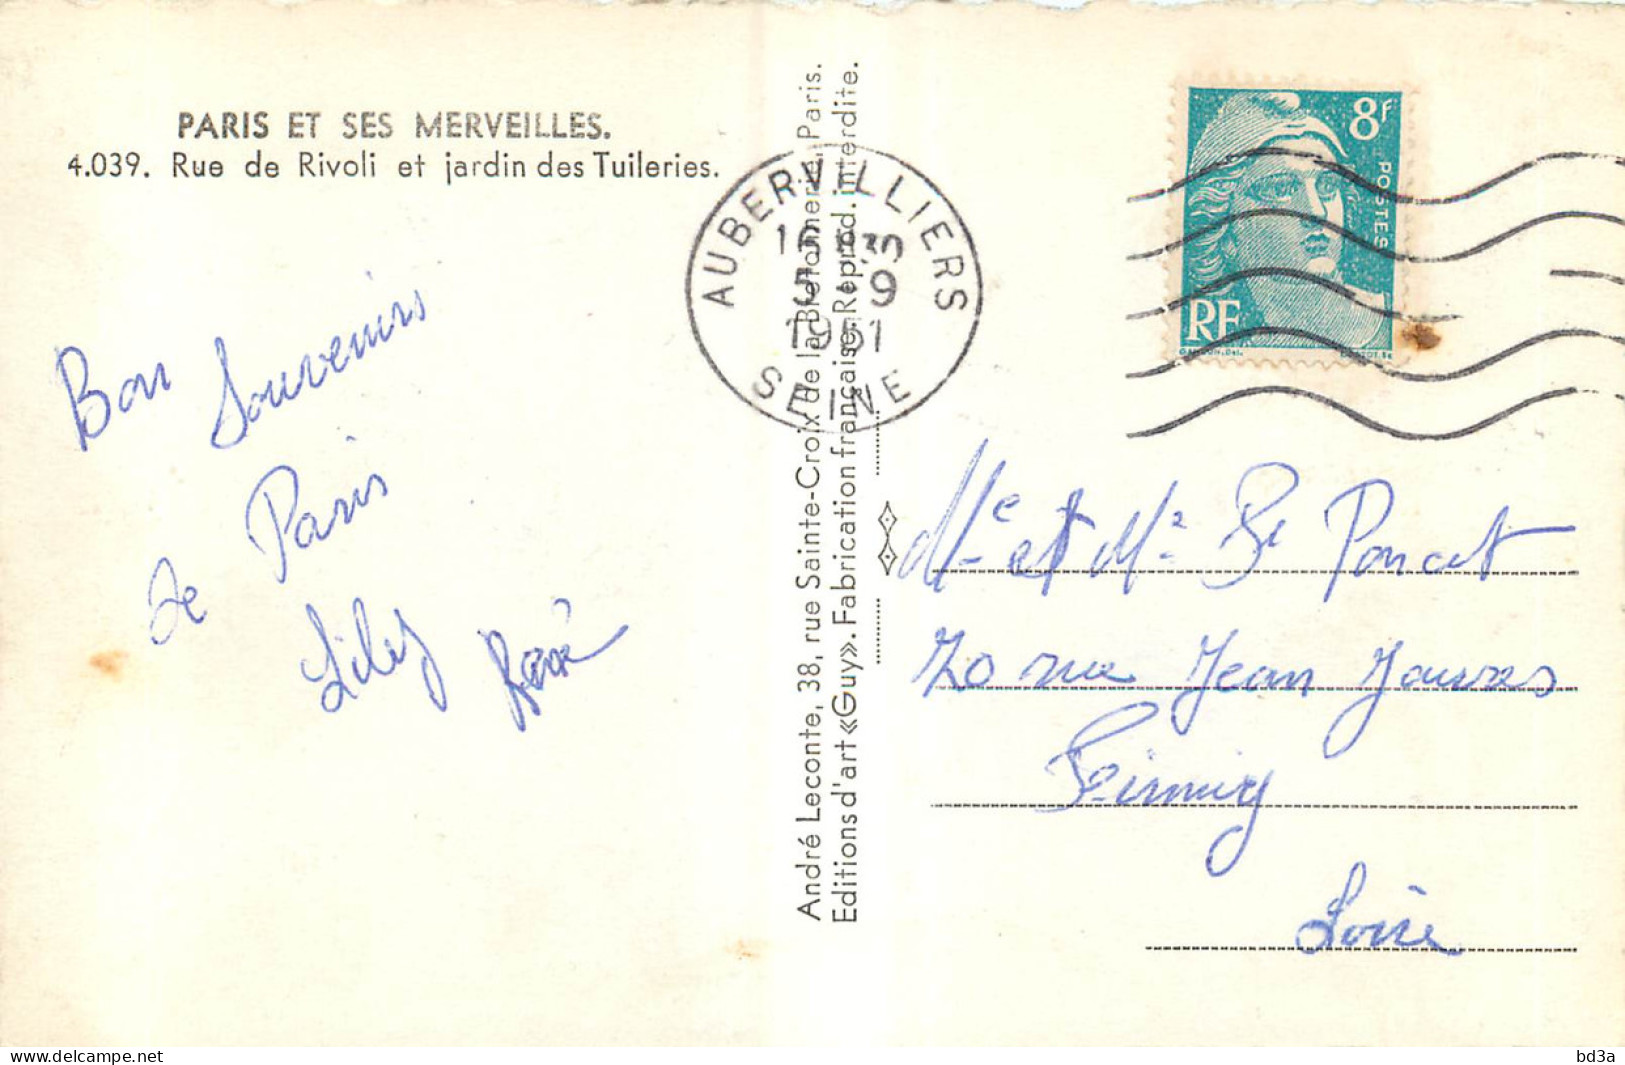 PARIS ET SES MERVEILLES.
4.039. Rue de Rivoli et jardin des Tuileries.
Bon Souvenirs
de Paris
Lily René
André Leconte, 38, rue Sainte-Croix de la Bretonnerie, Paris.
Editions d'art «Guy». Fabrication française. Reprod. interdite.
AUBERVILLIERS
16 H 30
5 - 9
1951
SEINE
8f
POSTES
RF
GANDON. Del.
Me et Mr Poncet
20 rue Jean Jaures
Firminy
Loire
www.delcampe.net
bd3a